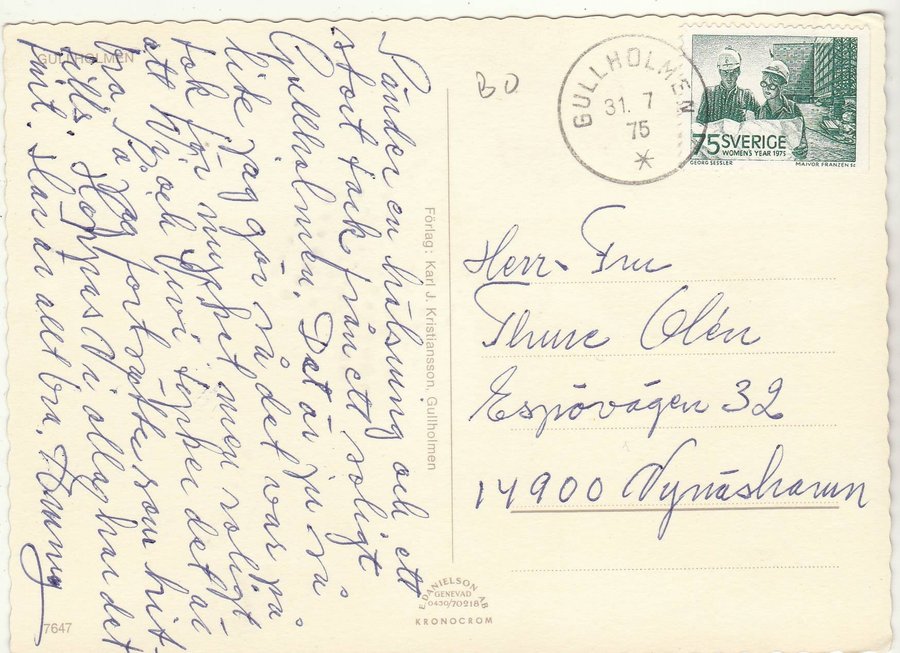 GULLHOLMEN
Sänder en hälsning och ett
stort tack från ett soligt
Gullholmen. Det är ju så
lite jag gör så det var
tok för mycket men roligt
att och tycker det är
bra så jag fortsätter som hit-
tills. Hoppas Vi alla har det
fint. Här är allt bra.
7647
Förlag: Karl J. Kristiansson, Gullholmen
E. DANIELSON AB
GENEVAD
0430/70218
KRONOCROM
BO
GULLHOLMEN
31. 7
75
75 SVERIGE
WOMENS YEAR 1975
GEORG SESSLER
MAJVOR FRANZEN SC
Herr. Fru
Thure Olén
Espövägen 32
14900 Nynäshamn